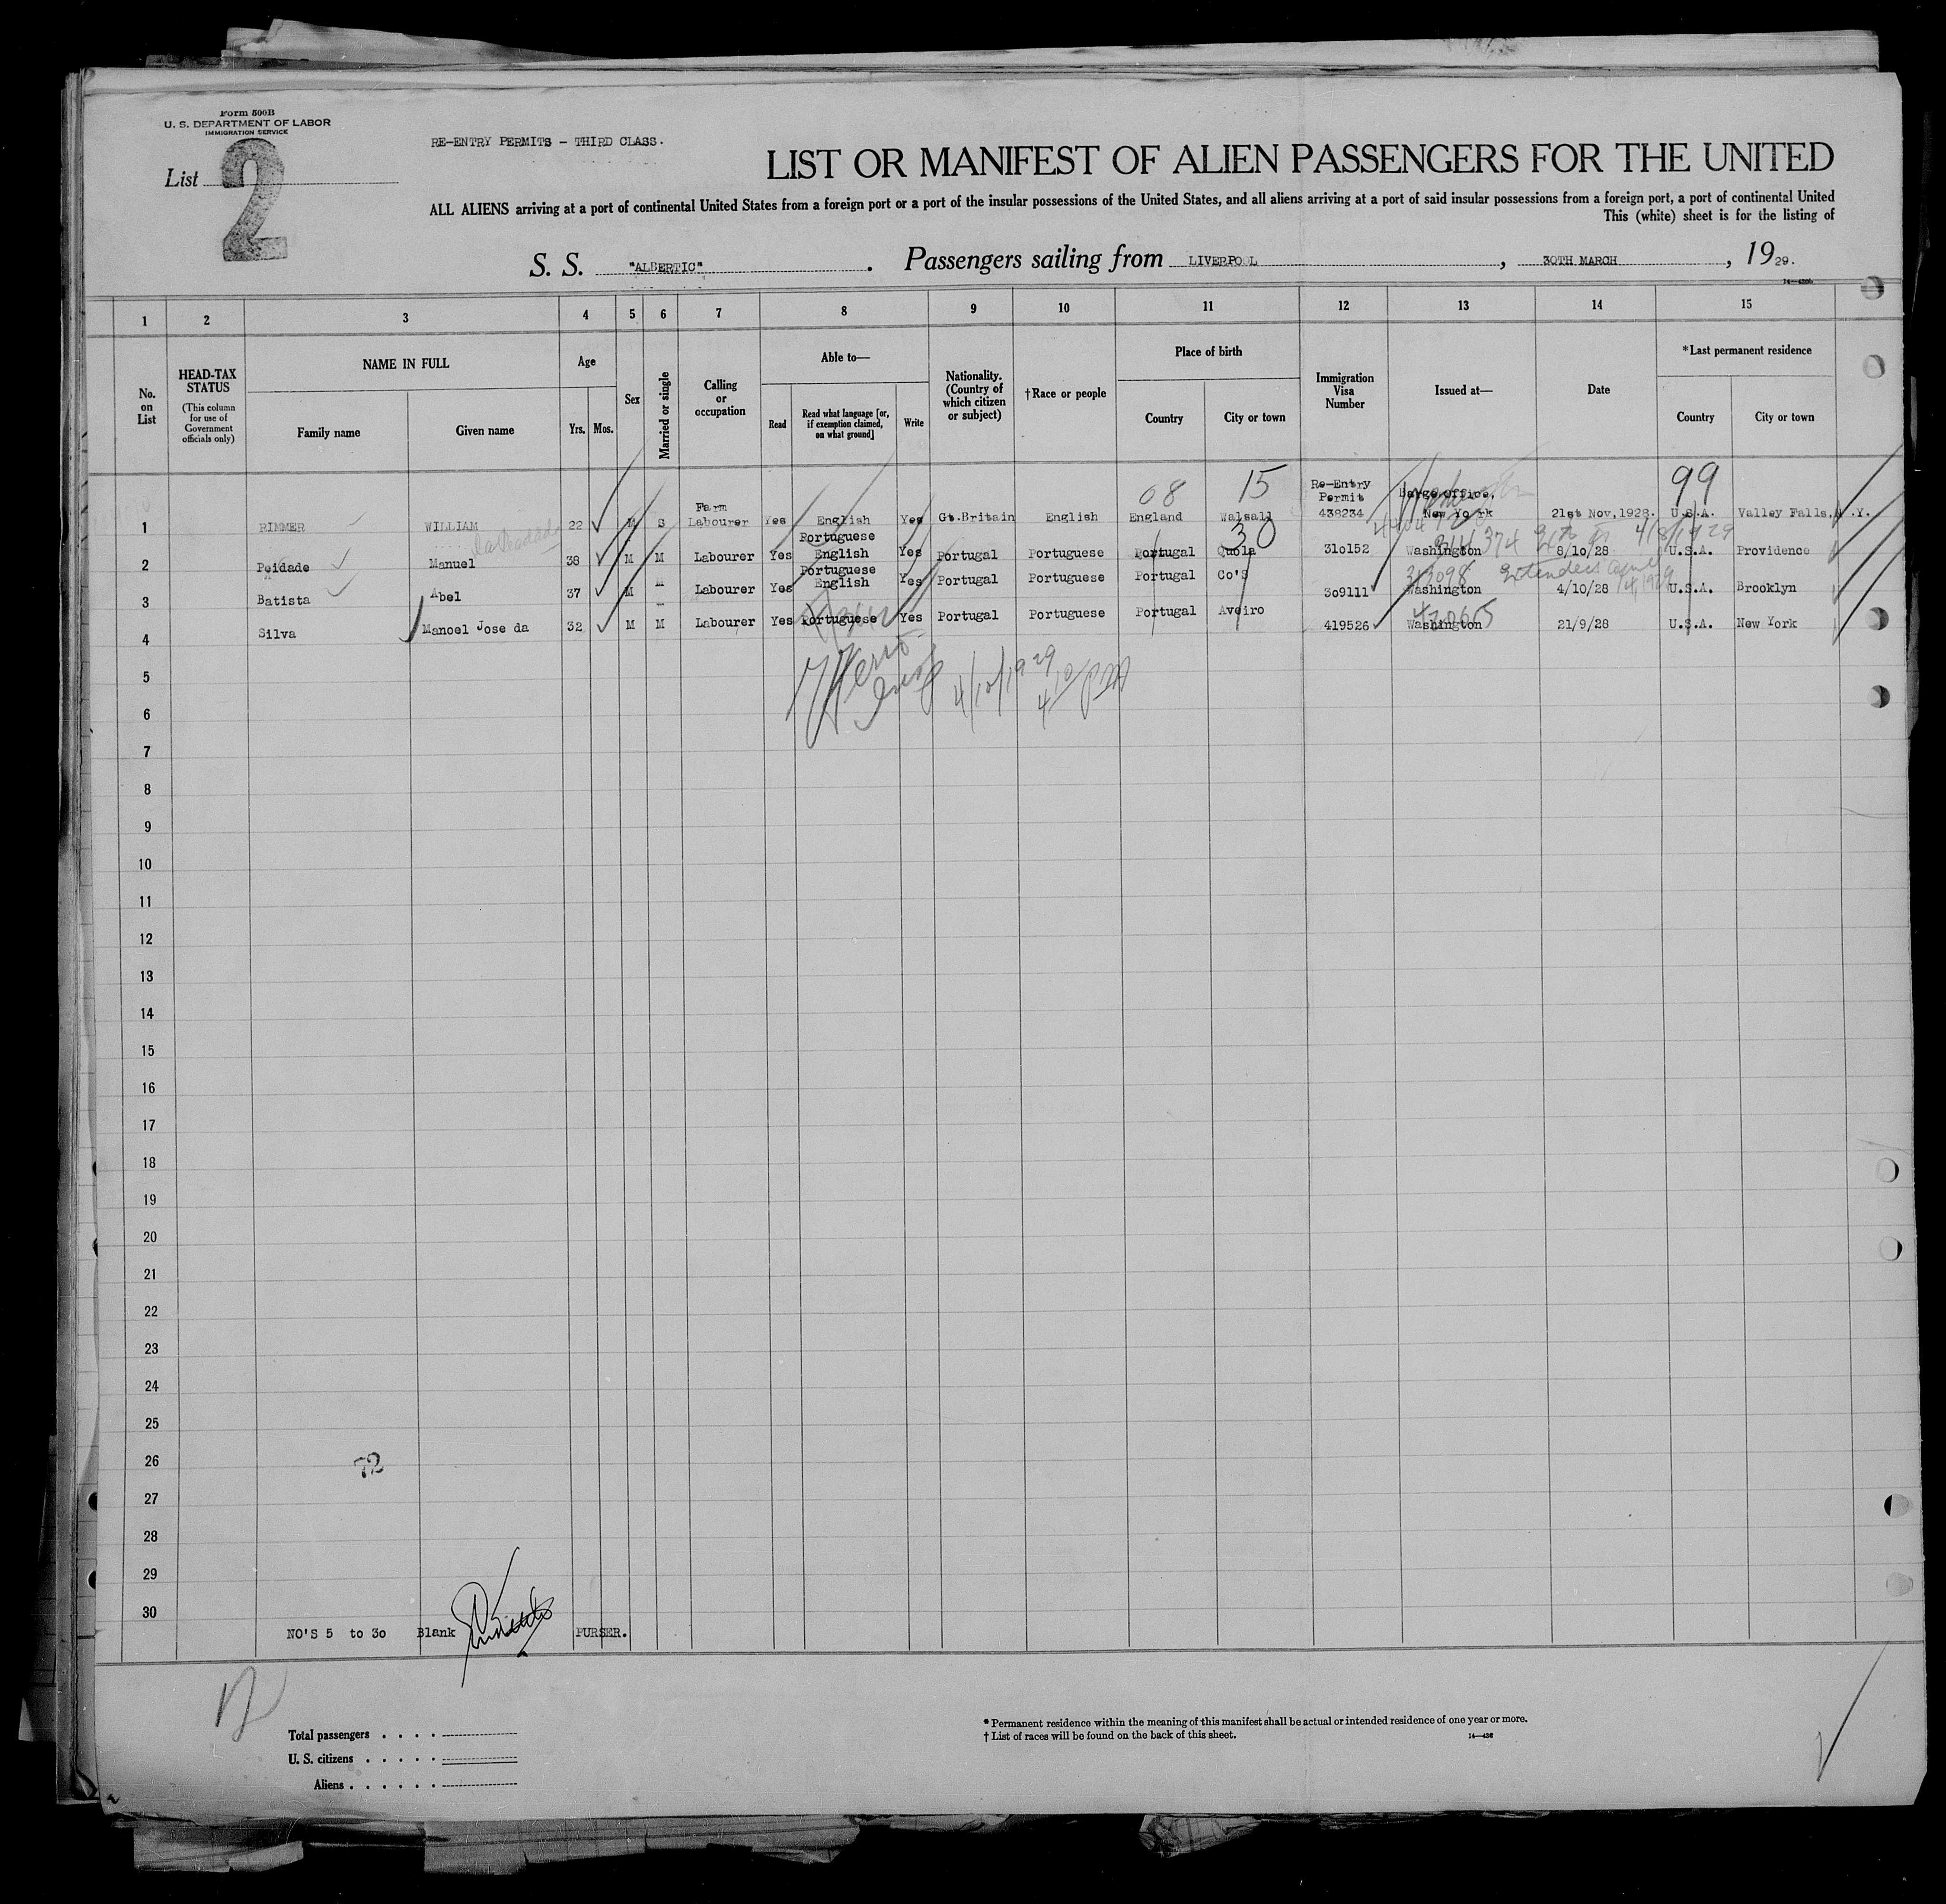 Form 500B
U. S. DEPARTMENT OF LABOR
IMMIGRATION SERVICE
RE-ENTRY PERMITS - THIRD CLASS.
List 2
LIST OR MANIFEST OF ALIEN PASSENGERS FOR THE UNITED
ALL ALIENS arriving at a port of continental United States from a foreign port or a port of the insular possessions of the United States, and all aliens arriving at a port of said insular possessions from a foreign port, a port of continental United
This (white) sheet is for the listing of
S. S. "ALBERTIC" . Passengers sailing from LIVERPOOL , 30TH MARCH , 19 29.
1 2 3 4 5 6 7 8 9 10 11 12 13 14 15
No. on List
HEAD-TAX STATUS
(This column for use of Government officials only)
NAME IN FULL
Family name Given name
Age
Yrs. Mos.
Sex
Married or single
Calling or occupation
Able to—
Read
Read what language [or, if exemption claimed, on what ground]
Write
Nationality. (Country of which citizen or subject)
†Race or people
Place of birth
Country City or town
Immigration Visa Number
Issued at—
Date
*Last permanent residence
Country City or town
08 15 99
1 RIMMER WILLIAM 22 M S Farm Labourer Yes English Yes Gt.Britain English England Walsall Re-Entry Permit 438234 Barge Office, New York 21st Nov,1928. U.S.A. Valley Falls,N.Y.
30
314374 4/8/1929
2 Peidade Manuel 38 M M Labourer Yes Portuguese English Yes Portugal Portuguese Portugal Quola 310152 Washington 8/10/28 U.S.A. Providence
313098 Extended
3 Batista Abel 37 M M Labourer Yes Portuguese English Yes Portugal Portuguese Portugal Co'S 309111 Washington 4/10/28 U.S.A. Brooklyn
420655
4 Silva Manoel Jose da 32 M M Labourer Yes Portuguese Yes Portugal Portuguese Portugal Aveiro 419526 Washington 21/9/28 U.S.A. New York
4/10/1929
5
6
7
8
9
10
11
12
13
14
15
16
17
18
19
20
21
22
23
24
25
26
72
27
28
29
30
NO'S 5 to 30 Blank PURSER.
Total passengers . . . .
U. S. citizens . . . . .
Aliens . . . . . .
* Permanent residence within the meaning of this manifest shall be actual or intended residence of one year or more.
† List of races will be found on the back of this sheet.
14—436